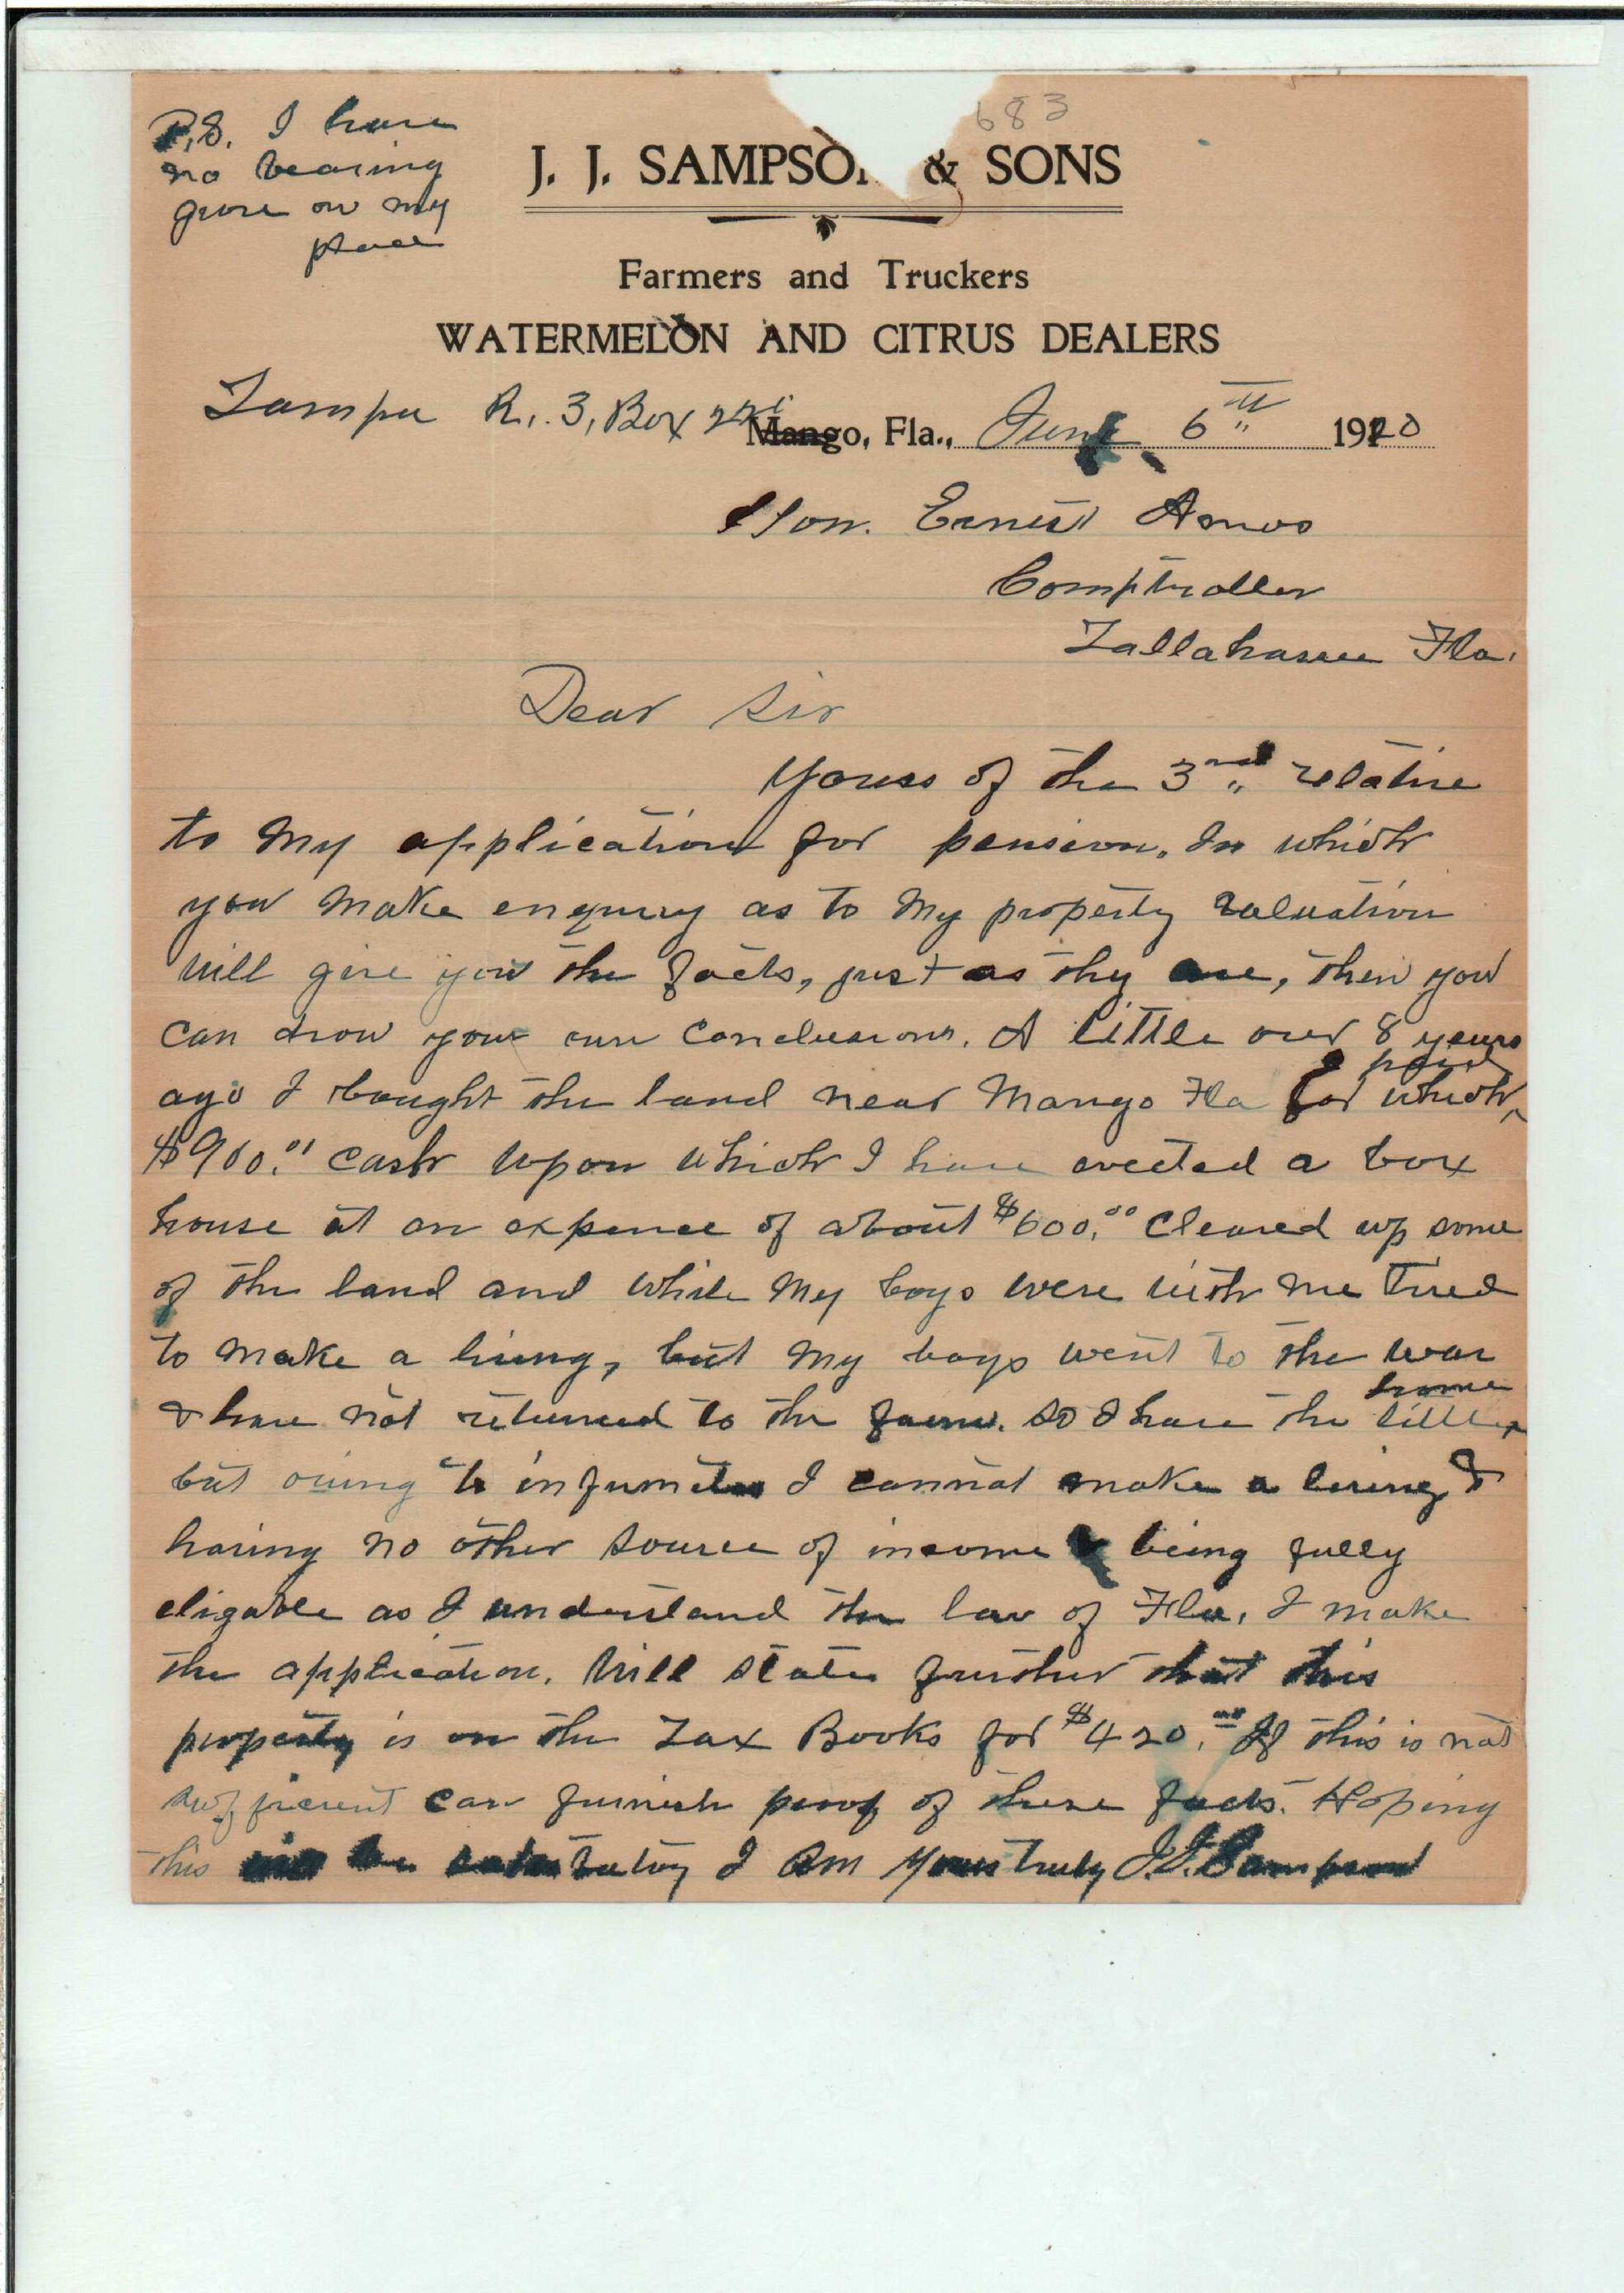 683
P.S. I have
no bearing
grove on my
place
J. J. SAMPSON & SONS
Farmers and Truckers
WATERMELON AND CITRUS DEALERS
Tampa R. 3, Box
Mango, Fla., June 6th 1920
Hon. Ernest Amos
Comptroller
Tallahassee Fla.
Dear Sir
Yours of the 3rd relative
to my application for pension. In which
you make enquiry as to my property valuation
will give you the facts, just as they are, then you
can draw your own conclusions. A little over 8 years
ago I bought the land near Mango Fla for which I paid
$900.00 cash upon which I have erected a box
house at an expence of about $600.00 Cleared up some
of the land and while my boys were with me tried
to make a living, but my boys went to the war
& have not returned to the farm. So I have the little home
but owing to infirmities I cannot make a living &
having no other source of income & being fully
eligable as I understand the law of Fla, I make
the application. Will state further that this
property is on the Tax Books for $420.00 If this is not
sufficient can furnish proof of these facts. Hoping
this will be satisfactory I am yours truly J.J. Sampson